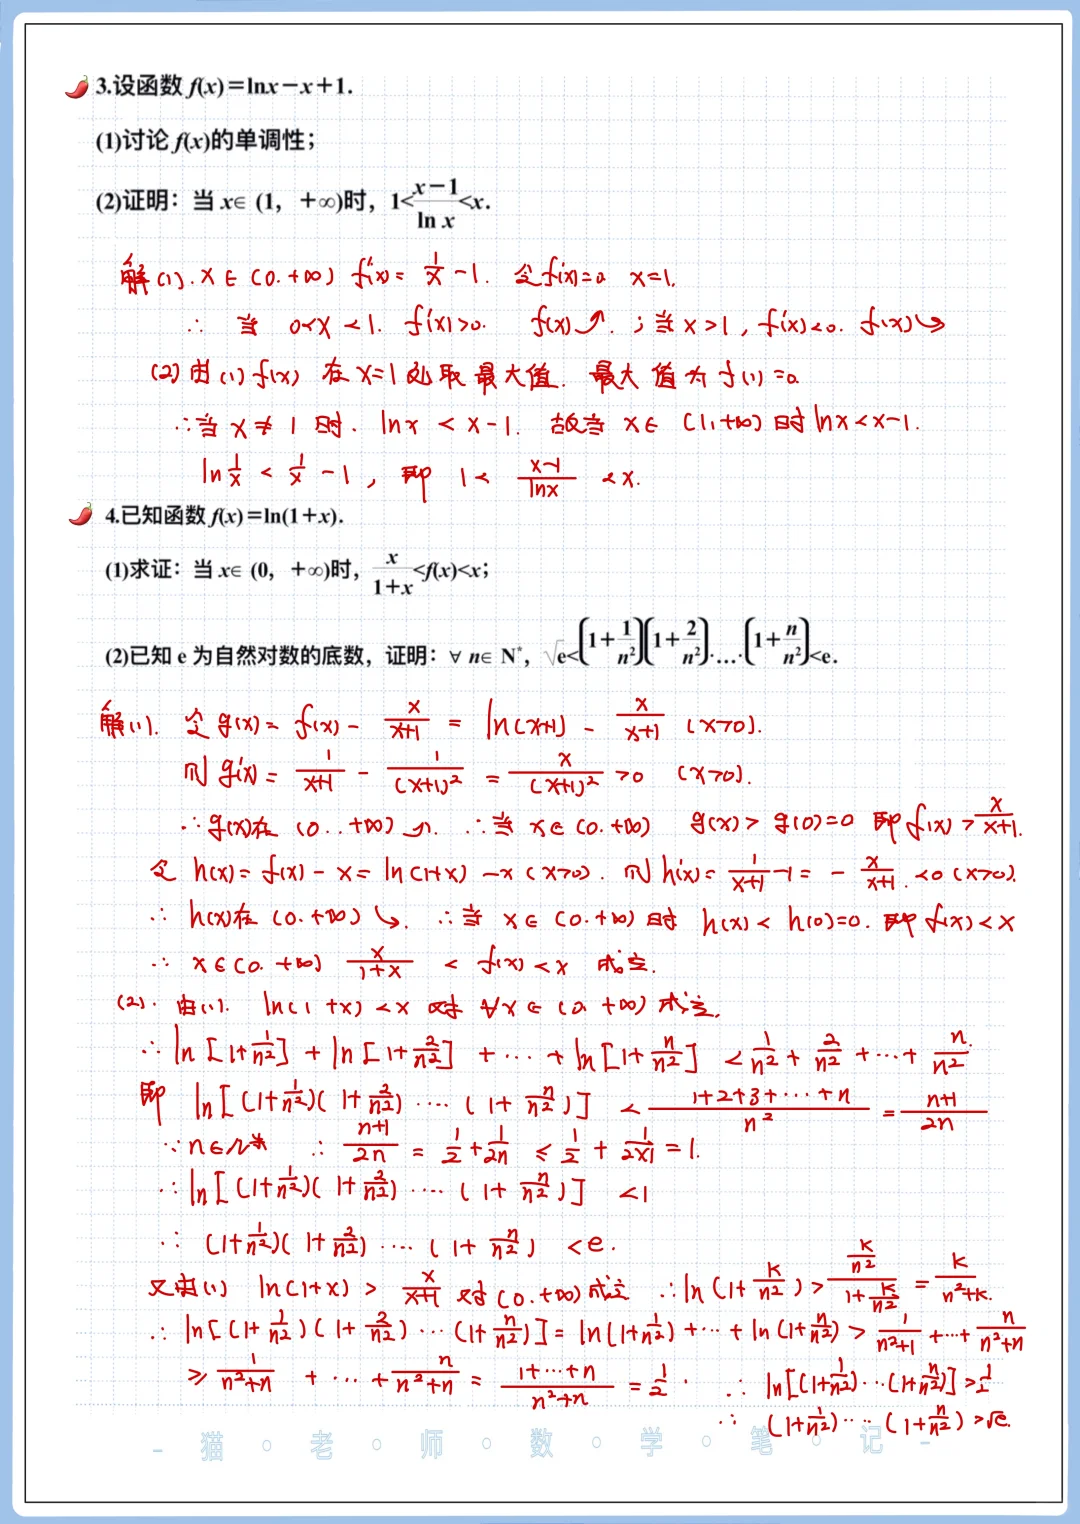 3.设函数 f(x)=lnx-x+1.
(1)讨论 f(x)的单调性;
(2)证明：当 x∈ (1, +∞)时, 1<\frac{x-1}{ln x}<x.
解(1). x∈(0.+∞) f'(x)=\frac{1}{x}-1. 令f'(x)=0 x=1.
∴ 当 0<x<1. f'(x)>0. f(x)↗. ; 当 x>1, f'(x)<0. f(x)↘
(2)由(1) f(x) 在 x=1处取最大值. 最大值为f(1)=0
∴当 x≠1时. lnx < x-1. 故当 x∈(1,+∞)时 lnx<x-1.
ln\frac{1}{x} < \frac{1}{x}-1, 即 1<\frac{x-1}{lnx}<x.
4.已知函数 f(x)=ln(1+x).
(1)求证：当 x∈ (0, +∞)时, \frac{x}{1+x}<f(x)<x;
(2)已知 e 为自然对数的底数，证明：∀ n∈ N*, √e<(1+\frac{1}{n²})(1+\frac{2}{n²})·…·(1+\frac{n}{n²})<e.
解(1). 令 g(x)= f(x)-\frac{x}{x+1} = ln(x+1)-\frac{x}{x+1} (x>0).
则 g'(x)=\frac{1}{x+1}-\frac{1}{(x+1)²}=\frac{x}{(x+1)²}>0 (x>0).
∴g(x)在(0..+∞)↗. ∴当 x∈(0.+∞) g(x)>g(0)=0 即 f(x)>\frac{x}{x+1}.
令 h(x)=f(x)-x=ln(1+x)-x (x>0). 则 h'(x)=\frac{1}{x+1}-1=-\frac{x}{x+1}.<0 (x>0).
∴ h(x)在(0.+∞)↘. ∴当 x∈(0.+∞)时 h(x)<h(0)=0. 即 f(x)<x
∴ x∈(0. +∞) \frac{x}{1+x} < f(x)<x 成立.
(2). 由(1). ln(1+x)<x 对 ∀x∈(0, +∞)成立.
∴ ln[1+\frac{1}{n²}]+ln[1+\frac{2}{n²}]+···+ln[1+\frac{n}{n²}] <\frac{1}{n²}+\frac{2}{n²}+···+\frac{n}{n²}.
即 ln[(1+\frac{1}{n²})(1+\frac{2}{n²})····(1+\frac{n}{n²})] <\frac{1+2+3+···+n}{n²}=\frac{n+1}{2n}
∵n∈N* ∴ \frac{n+1}{2n}=\frac{1}{2}+\frac{1}{2n} ≤ \frac{1}{2}+\frac{1}{2×1}=1.
∴ ln[(1+\frac{1}{n²})(1+\frac{2}{n²})····(1+\frac{n}{n²})] <1
∴ (1+\frac{1}{n²})(1+\frac{2}{n²})····(1+\frac{n}{n²}) <e.
又由(1) ln(1+x)>\frac{x}{x+1} 对(0.+∞)成立 ∴ln(1+\frac{k}{n²})>\frac{\frac{k}{n²}}{1+\frac{k}{n²}}=\frac{k}{n²+k}.
∴ ln[(1+\frac{1}{n²})(1+\frac{2}{n²})···(1+\frac{n}{n²})]=ln(1+\frac{1}{n²})+···+ln(1+\frac{n}{n²})>\frac{1}{n²+1}+···+\frac{n}{n²+n}
≥\frac{1}{n²+n}+···+\frac{n}{n²+n}=\frac{1+···+n}{n²+n}=\frac{1}{2}. ∴ ln[(1+\frac{1}{n²})···(1+\frac{n}{n²})]>\frac{1}{2}
∴ (1+\frac{1}{n²})····(1+\frac{n}{n²})>√e.
- 猫 · 老 · 师 · 数 · 学 · 笔 · 记 -